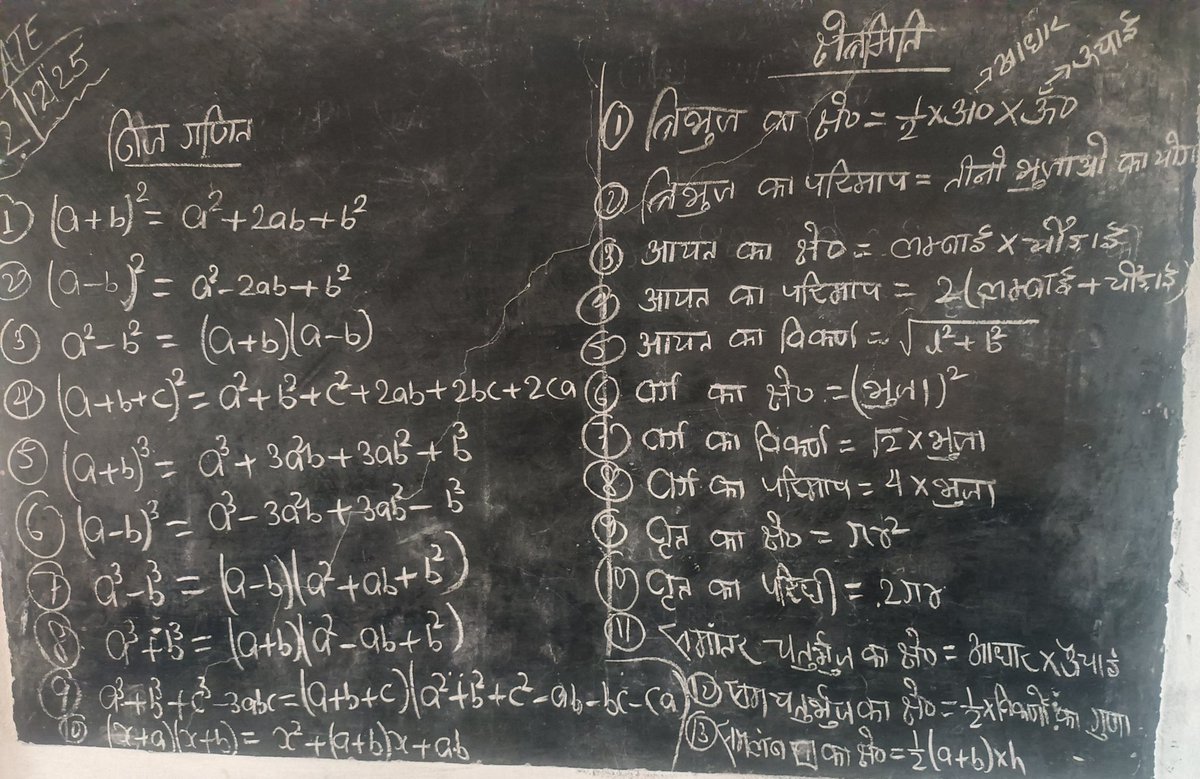 DATE
2/12/25
बिज गणित
① (a+b)² = a²+2ab+b²
② (a-b)² = a²-2ab+b²
③ a²-b² = (a+b)(a-b)
④ (a+b+c)² = a²+b²+c²+2ab+2bc+2ca
⑤ (a+b)³ = a³+3a²b+3ab²+b³
⑥ (a-b)³ = a³-3a²b+3ab²-b³
⑦ a³-b³ = (a-b)(a²+ab+b²)
⑧ a³+b³ = (a+b)(a²-ab+b²)
⑨ a³+b³+c³-3abc = (a+b+c)(a²+b²+c²-ab-bc-ca)
⑩ (x+a)(x+b) = x²+(a+b)x+ab
क्षेत्रमिति
→ आधार
→ ऊचाई
① त्रिभुज का क्षे० = ½×आ०×ऊँ०
② त्रिभुज का परिमाप = तीनो भुजाओ का योग
③ आयत का क्षे० = लम्बाई × चौड़ाई
④ आयत का परिमाप = 2(लम्बाई + चौड़ाई)
⑤ आयत का विकर्ण = √l²+b²
⑥ वर्ग का क्षे० = (भुजा)²
⑦ वर्ग का विकर्ण = √2 × भुजा
⑧ वर्ग का परिमाप = 4 × भुजा
⑨ वृत का क्षे० = πr²
⑩ वृत का परिधी = 2πr
⑪ समांतर चतुर्भुज का क्षे० = आधार × ऊँचाई
⑫ सम चतुर्भुज का क्षे० = ½×विकर्णो का गुणा
⑬ समलंब □ का क्षे० = ½(a+b)×h